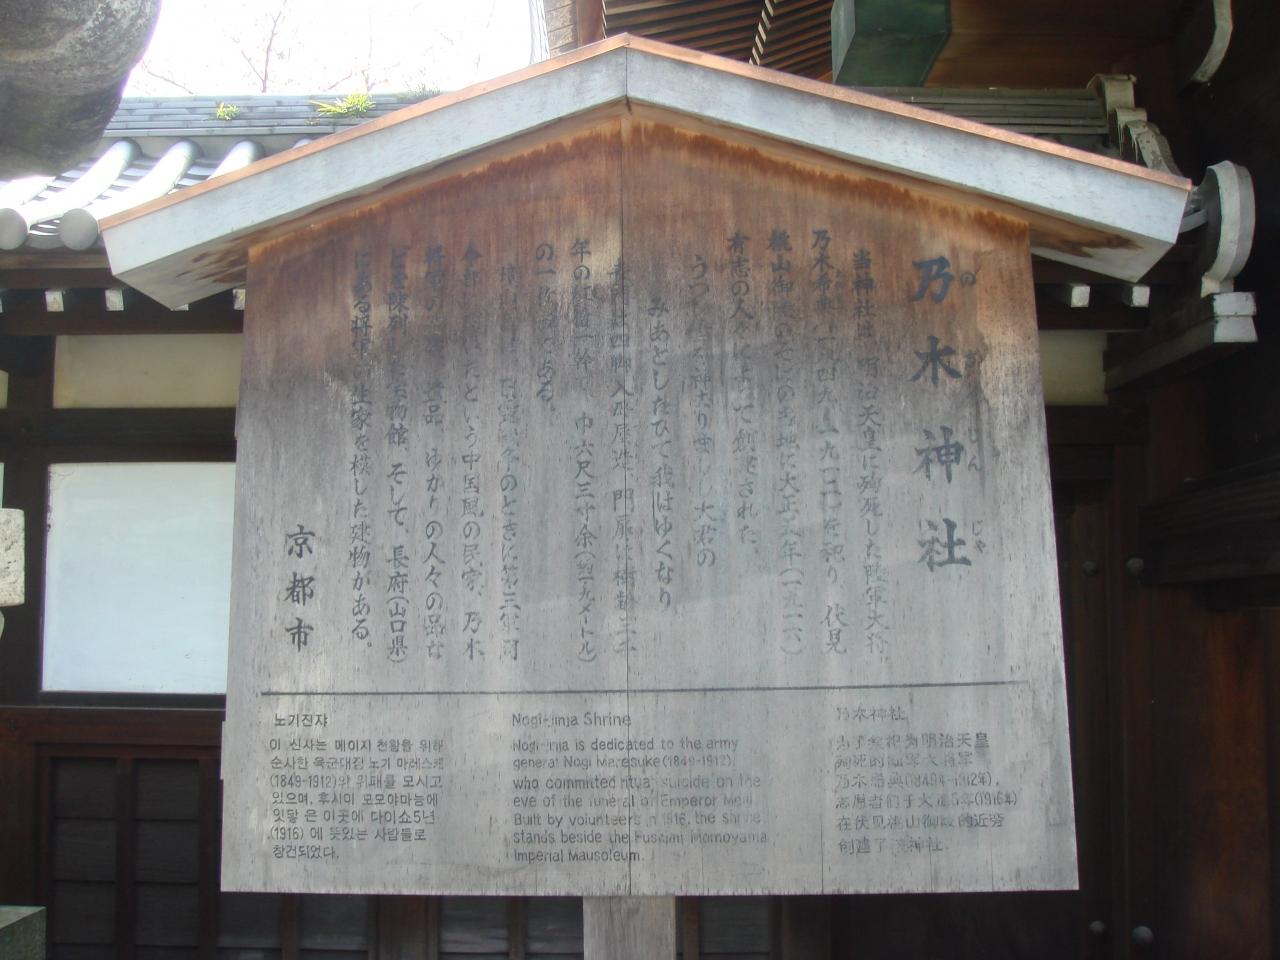 乃木神社
のぎじんじゃ
当神社は、明治天皇に殉死した陸軍大将
乃木希典(一八四九~一九一二)を祀り、伏見
桃山御陵のそばの当地に大正五年(一九一六)
有志の人々によって創建された。
うつし世を神去りましし大君の
みあとしたひて我はゆくなり
表門は四脚入母屋造、門扉は樹齢三三
年の紅檜一幹で、巾六尺三寸余(約一・九メートル)
の一枚扉である。
境内には、日露戦争のときに第三軍司
令部としていたという中国風の民家、乃木
将軍の遺品、ゆかりの人々の品な
どを陳列した宝物館、そして、長府(山口県)
にある将軍の生家を模した建物がある。
京都市
노기진쟈
이 신사는 메이지 천황을 위해
순사한 육군대장 노기 마레스케
(1849-1912)의 위패를 모시고
있으며, 후시미 모모야마능에
잇닿 은 이곳에 다이쇼5년
(1916) 에 뜻있는 사람들로
창건되었다.
Nogi-jinja Shrine
Nogi-jinja is dedicated to the army
general Nogi Maresuke (1849-1912)
who committed ritual suicide on the
eve of the funeral of Emperor Meiji.
Built by volunteers in 1916, the shrine
stands beside the Fushimi Momoyama
Imperial Mausoleum.
乃木神社
为了祭祀为明治天皇
殉死的陆军大将军
乃木希典(1849年-1912年),
志愿者们于大正5年(1916年)
在伏见桃山御陵的近旁
创建了该神社.